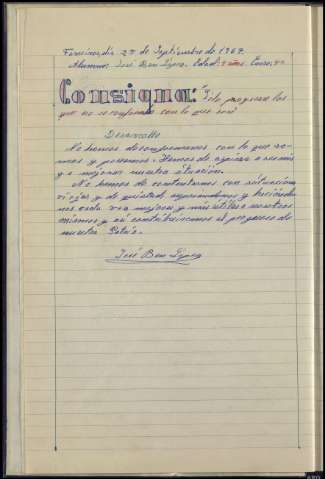 27 de Septiembre de 1967
Alumno: José Ben López. Edad: años. Curso:
Consigna: "Solo progresan los
que no se conforman con lo que son"
Desarrollo
No hemos de conformarnos con lo que so-
mos y poseemos. Hemos de aspirar a más
y a mejorar nuestra situación.
No hemos de contentarnos con
y de quietud y
nos cada vez mejores y más útiles a nosotros
mismos y así contribuiremos al progreso de
nuestra Patria.
José Ben López